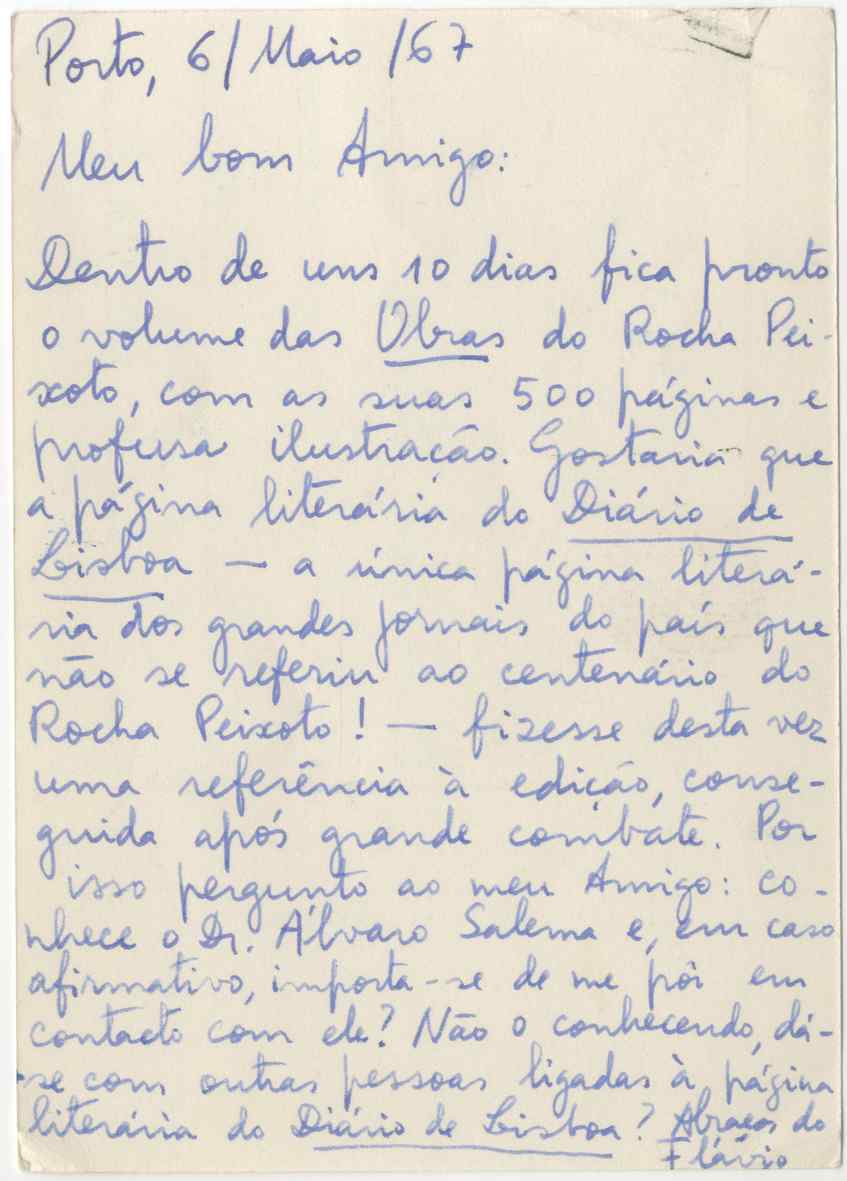 Porto, 6/Maio/67
Meu bom Amigo:
Dentro de uns 10 dias fica pronto
o volume das Obras do Rocha Pei-
xoto, com as suas 500 páginas e
profusa ilustração. Gostaria que
a página literária do Diário de
Lisboa — a única página literá-
ria dos grandes jornais do país que
não se referiu ao centenário do
Rocha Peixoto! — fizesse desta vez
uma referência à edição, conse-
guida após grande combate. Por
isso pergunto ao meu Amigo: co-
nhece o Dr. Álvaro Salema e, em caso
afirmativo, importa-se de me pôr em
contacto com ele? Não o conhecendo, dá-
-se com outras pessoas ligadas à página
literária do Diário de Lisboa? Abraços do
Flávio